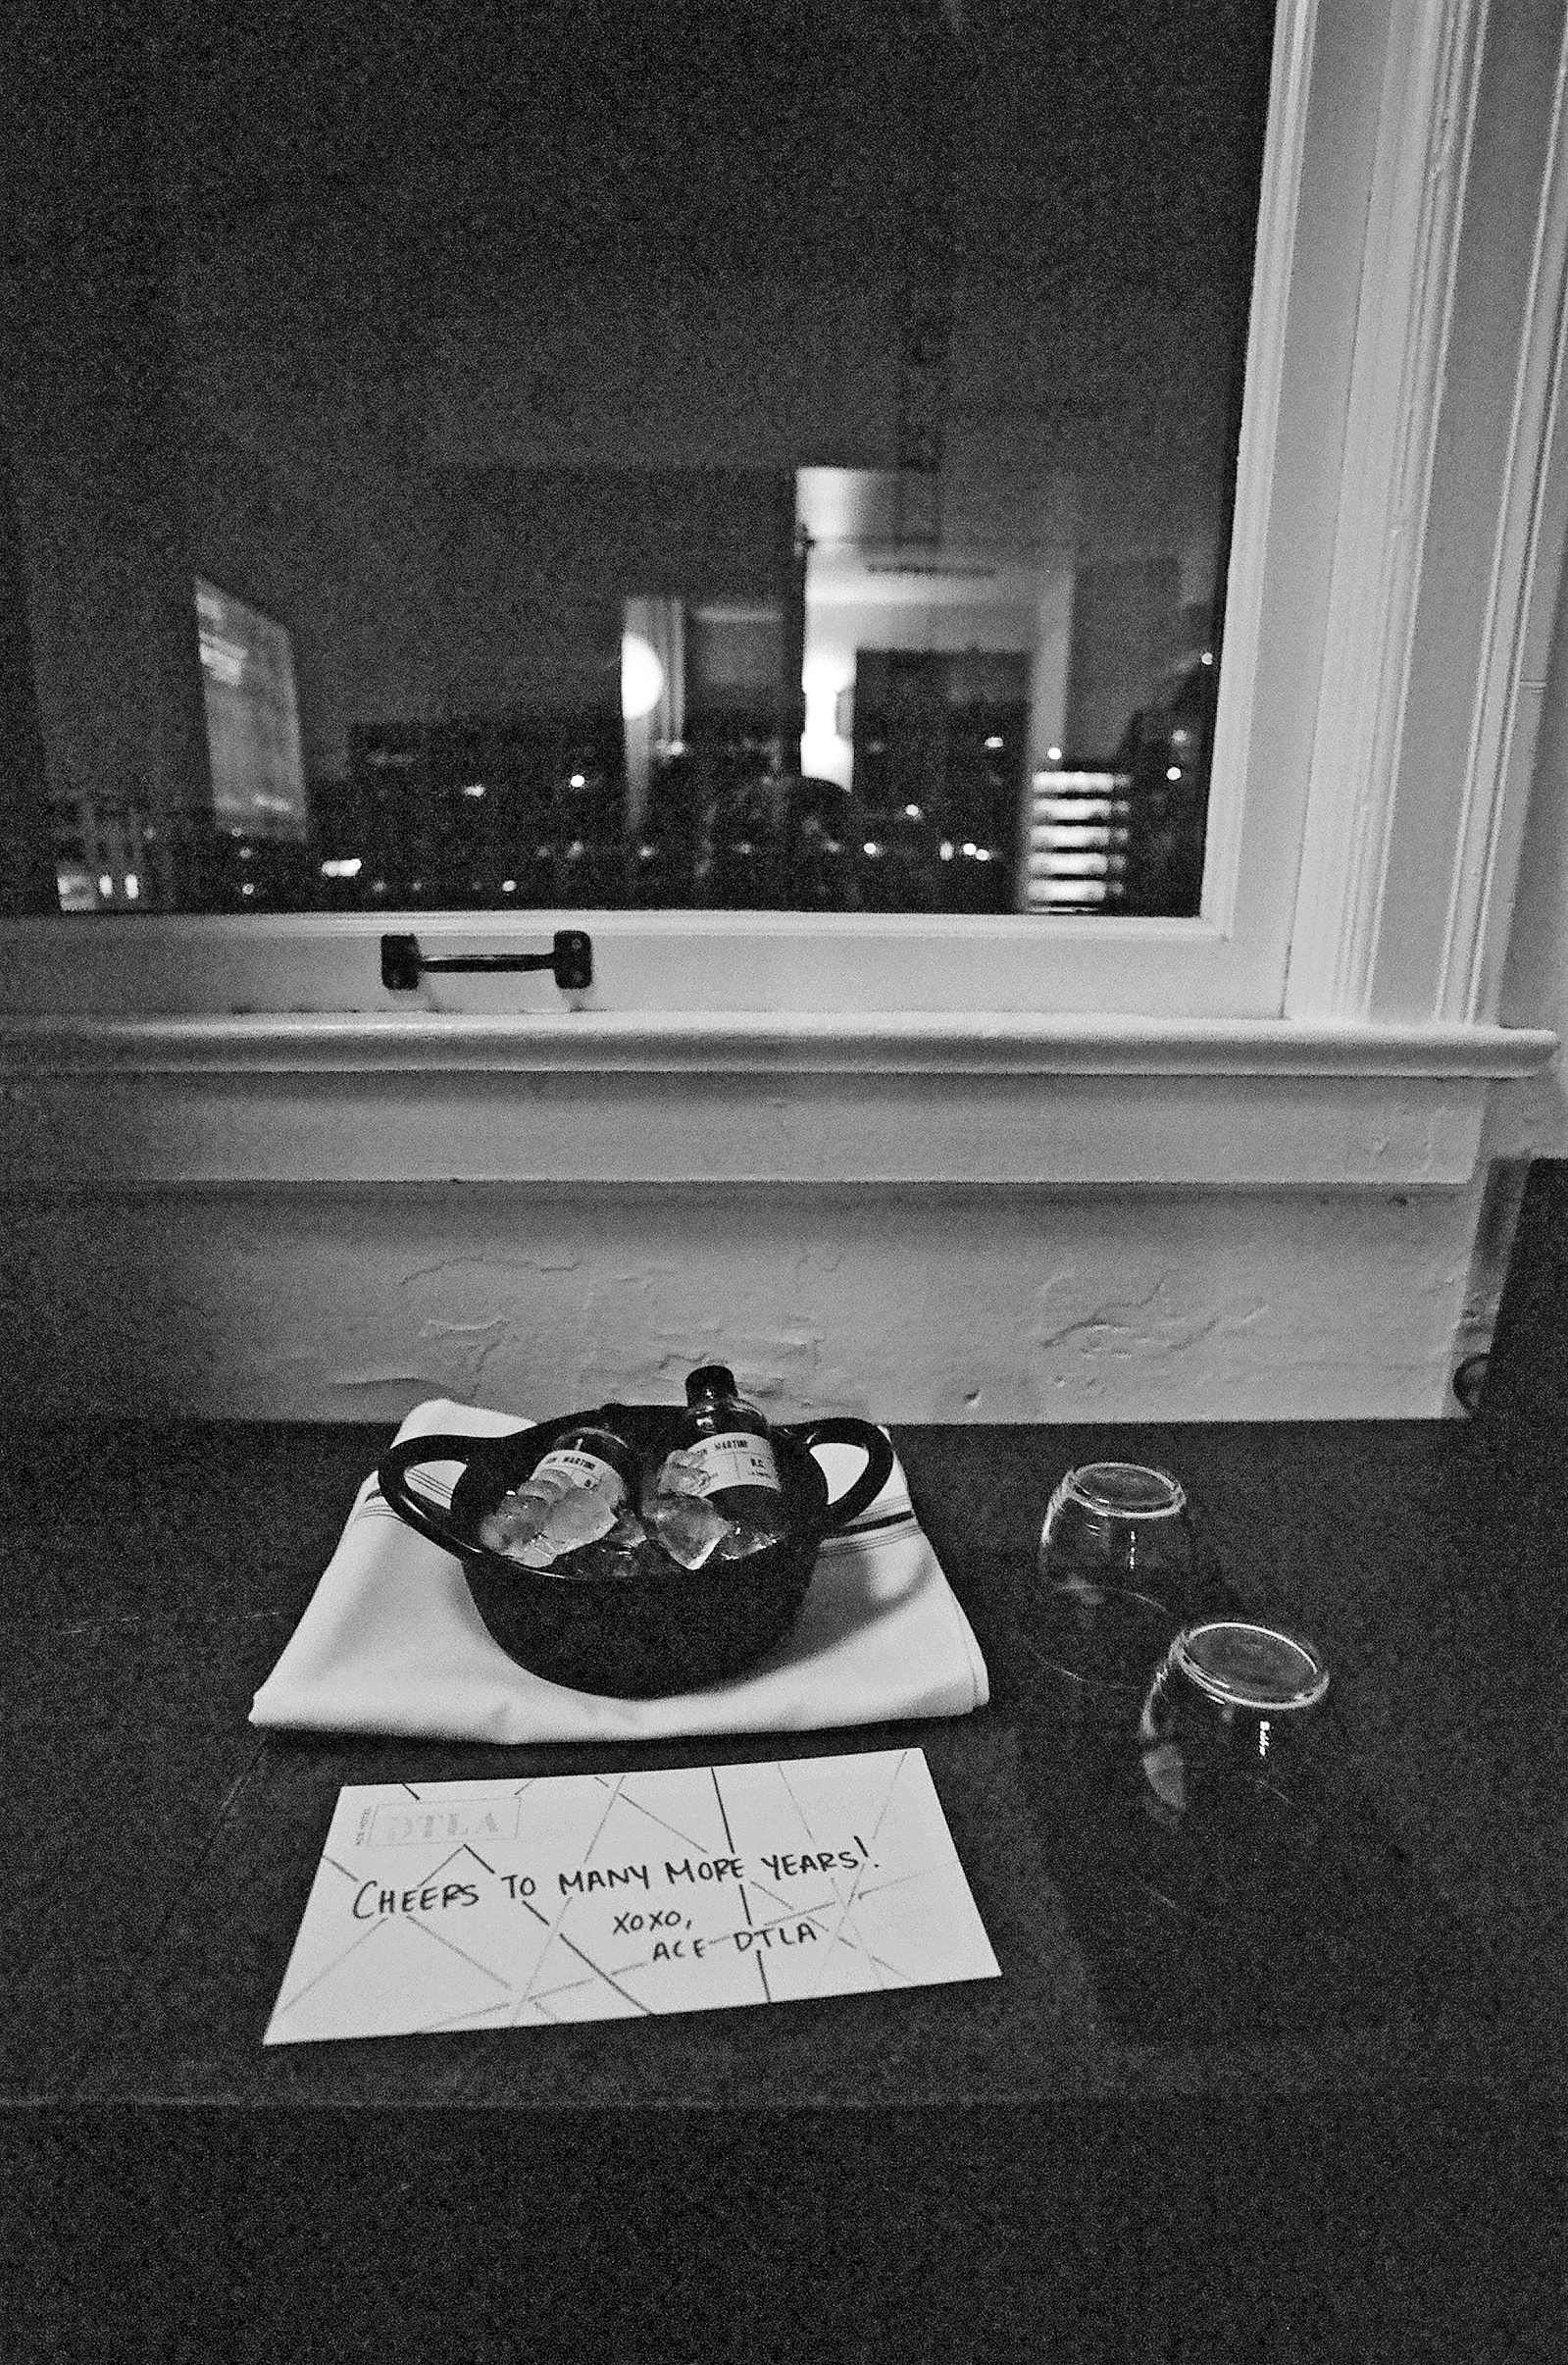 MARTINI
GIN MARTINI
ACE HOTEL
DTLA
CHEERS TO MANY MORE YEARS!
XOXO,
ACE DTLA